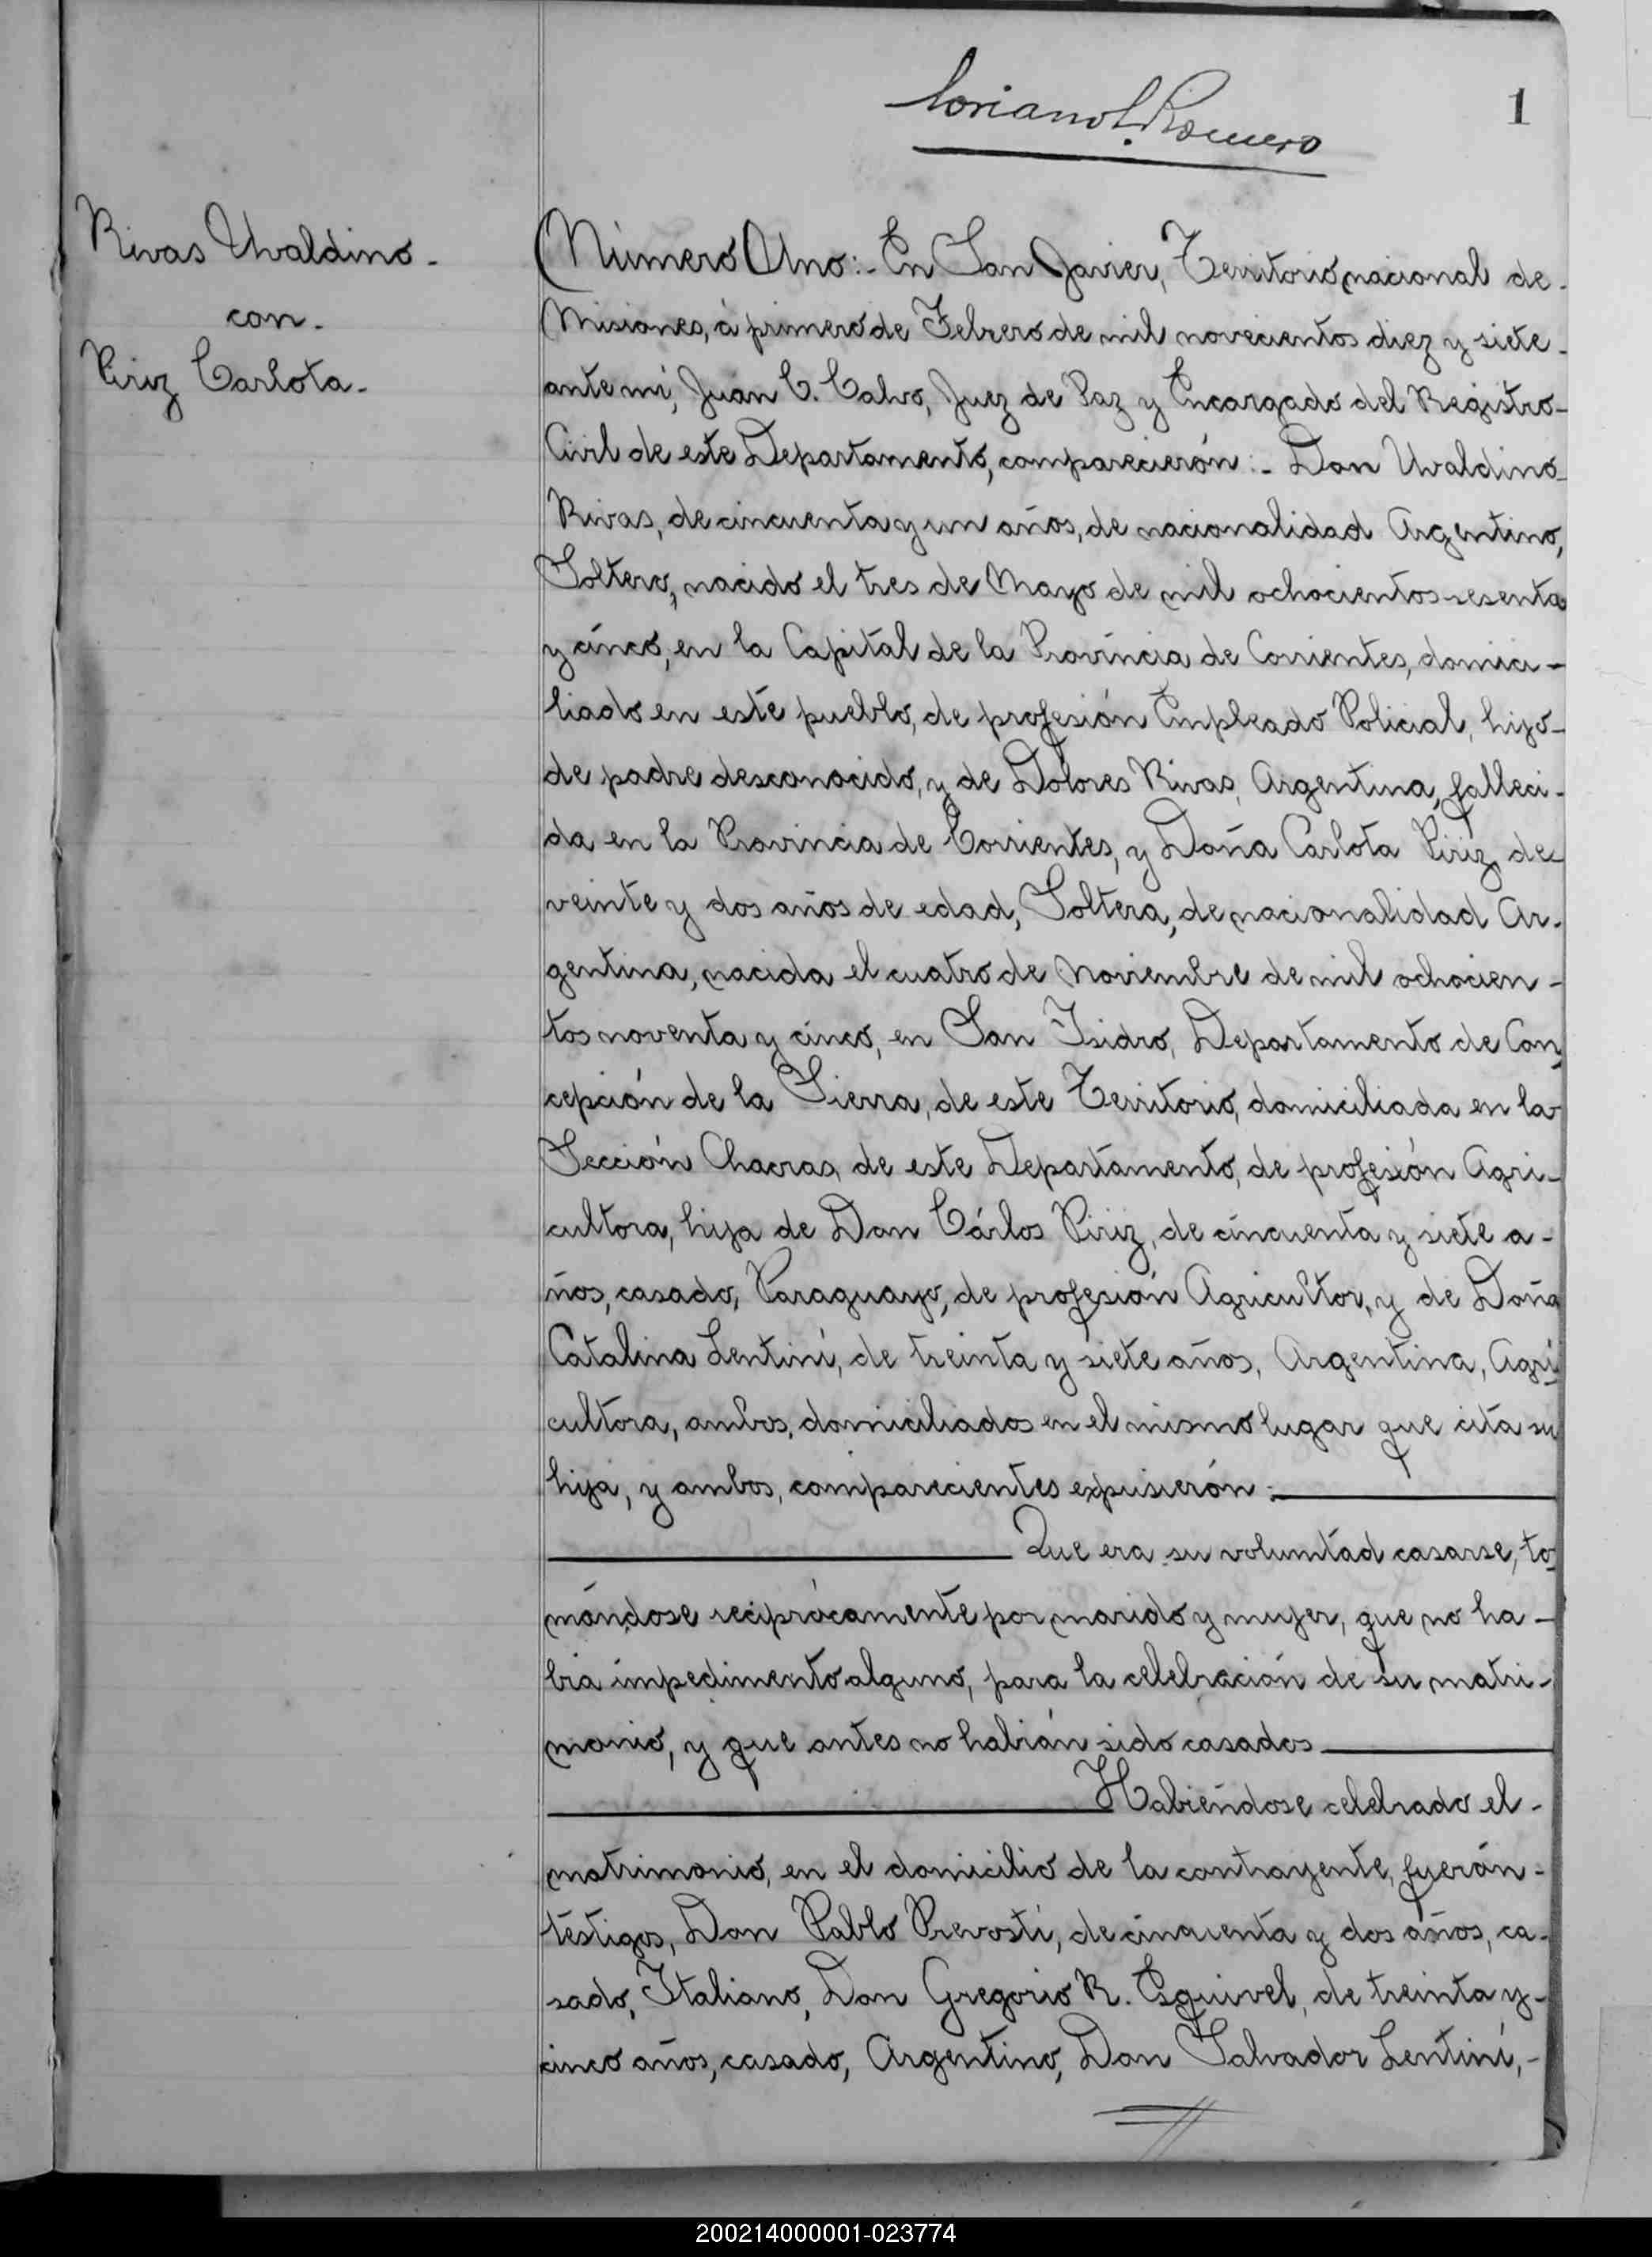 Soriano L. Romero
1
Rivas Uvaldino -
con -
Piriz Carlota -
Número Uno:- En San Javier, Territorio nacional de -
Misiones, á primero de Febrero de mil novecientos diez y siete -
ante mi, Juan C. Calvo, Juez de Paz y Encargado del Registro -
Civil de este Departamento, comparecierón:- Don Uvaldino -
Rivas, de cincuenta y un años, de nacionalidad Argentino,
Soltero, nacido el tres de Mayo de mil ochocientos sesenta
y cinco, en la Capital de la Provincia de Corrientes, domici -
liado en este pueblo, de profesión Empleado Policial, hijo -
de padre desconocido, y de Dolores Rivas, Argentina, falleci -
da en la Provincia de Corrientes, y Doña Carlota Piriz, de
veinte y dos años de edad, Soltera, de nacionalidad Ar -
gentina, nacida el cuatro de Noviembre de mil ochocien -
tos noventa y cinco, en San Isidro, Departamento de Con
cepción de la Sierra, de este Territorio, domiciliada en la
Sección Chacras, de este Departamento, de profesión Agri -
cultora, hija de Don Cárlos Piriz, de cincuenta y siete a -
ños, casado, Paraguayo, de profesión Agricultor, y de Doña
Catalina Lentini, de treinta y siete años, Argentina, Agri
cultora, ambos, domiciliados en el mismo lugar que cita su
hija, y ambos, comparecientes expusierón:
Que era su voluntad casarse, to
mándose reciprócamente por marido y mujer, que no ha -
bia impedimento alguno, para la celebración de su matri -
monio, y que antes no habián sido casados
Habiéndose celebrado el -
matrimonio, en el domicilio de la contrayente, fuerón -
testigos, Don Pablo Prevosti, de cincuenta y dos años, ca -
sado, Italiano, Don Gregorio R. Esquivel, de treinta y -
cinco años, casado, Argentino, Don Salvador Lentini, -
200214000001-023774